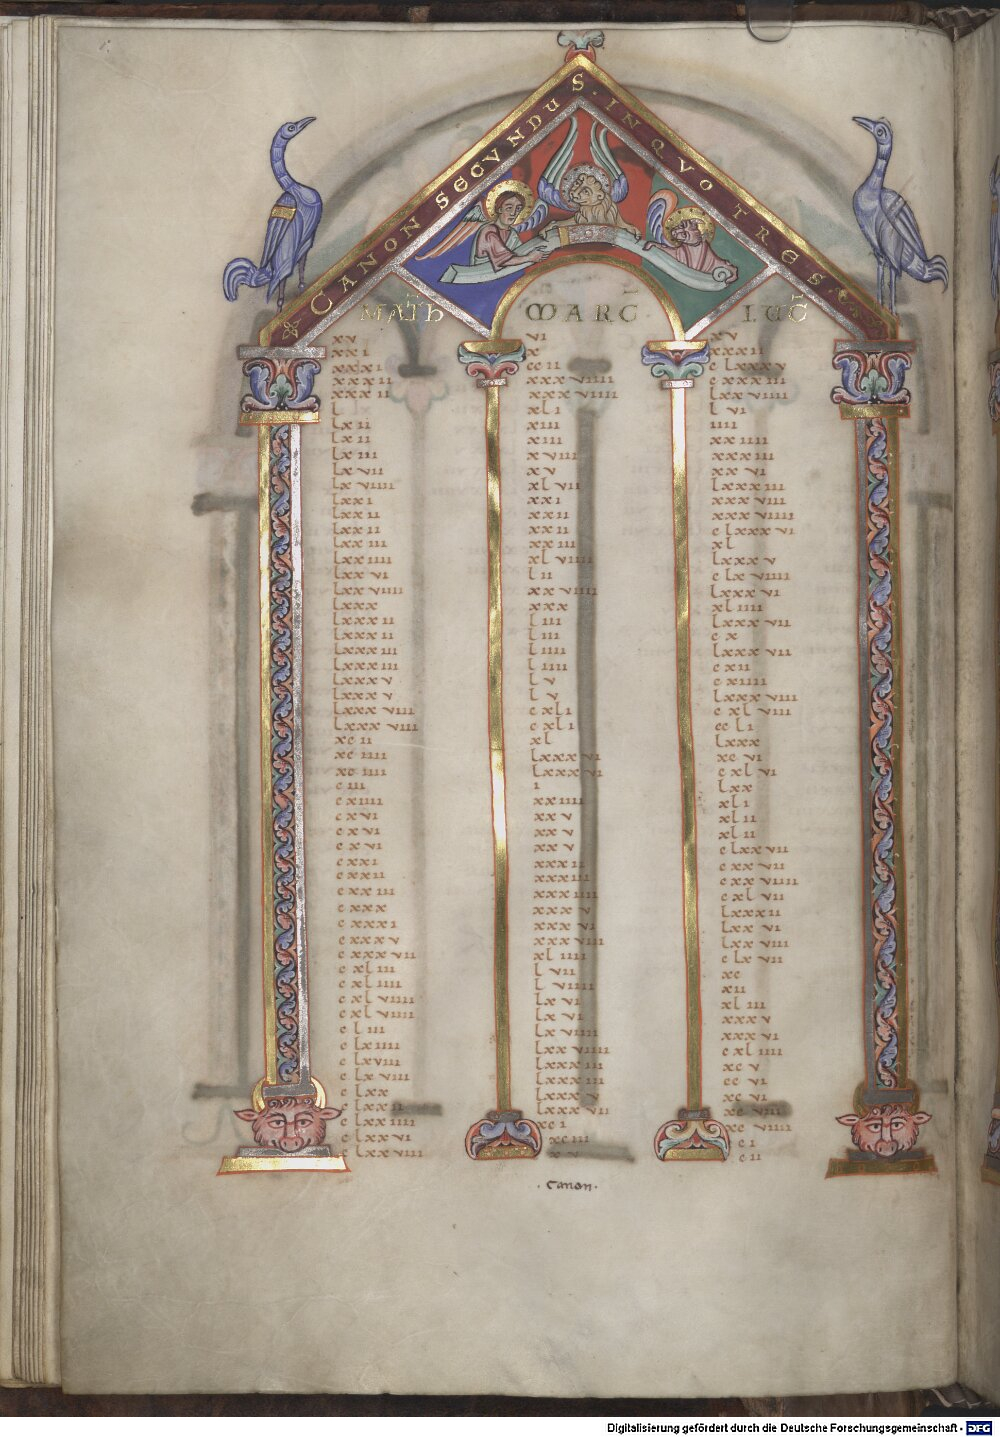 CANON SECUNDUS · IN QVO TRES
MATH
xv
xxi
xxxi
xxxii
xxxii
l
lxii
lxii
lxiii
lxvii
lxviiii
lxxi
lxxii
lxxii
lxxiii
lxxiiii
lxxvi
lxxviiii
lxxx
lxxxii
lxxxii
lxxxiii
lxxxiii
lxxxv
lxxxv
lxxxviii
lxxxviii
xcii
xciiii
xciiii
ciii
cxiiii
cxvi
cxvi
cxvi
cxxi
cxxii
cxxiii
cxxx
cxxxi
cxxxv
cxxxvii
cxliii
cxliiii
cxlviiii
cxlviiii
cliii
clxiiii
clxviii
clxviiii
clxx
clxxii
clxxiiii
clxxvi
clxxviii
MARC
vi
x
ccii
xxxviiii
xxxviiii
xli
xiii
xiii
xviii
xv
xlvii
xxi
xxii
xxii
xxiii
xlviiii
lii
xxviiii
xxx
liii
liii
liiii
liiii
lv
lv
cxli
cxli
xl
lxxxvi
lxxxvi
i
xxiiii
xxv
xxv
xxxii
xxxiii
xxxiiii
xxxv
xxxvi
xxxviii
xliiii
lvii
lviiii
lxvi
lxvi
lxviiii
lxxviiii
lxxxiii
lxxxiii
lxxxv
lxxxvii
xci
xciii
xv
LUC
xv
xxxii
clxxxv
cxxxiii
lxxviiii
lvi
iiii
xxiiii
xxxiii
xxvi
lxxxiii
xxxviii
xxxviiii
clxxxvi
xl
lxxxv
clxviiii
lxxxvi
xliiii
lxxxvii
cx
lxxxvii
cxii
cxiiii
lxxxviii
cxlviii
ccli
lxxx
xcvi
cxlvi
lxx
xli
xlii
xlii
clxxvii
cxxvii
cxxviiii
cxlvii
lxxxii
lxxvi
lxxviii
clxvii
xc
xii
xliii
xxxv
xxxvi
cxliiii
xcv
ccvi
xcvi
xcviii
xcviiii
ci
cii
· canon ·
Digitalisierung gefördert durch die Deutsche Forschungsgemeinschaft - DFG